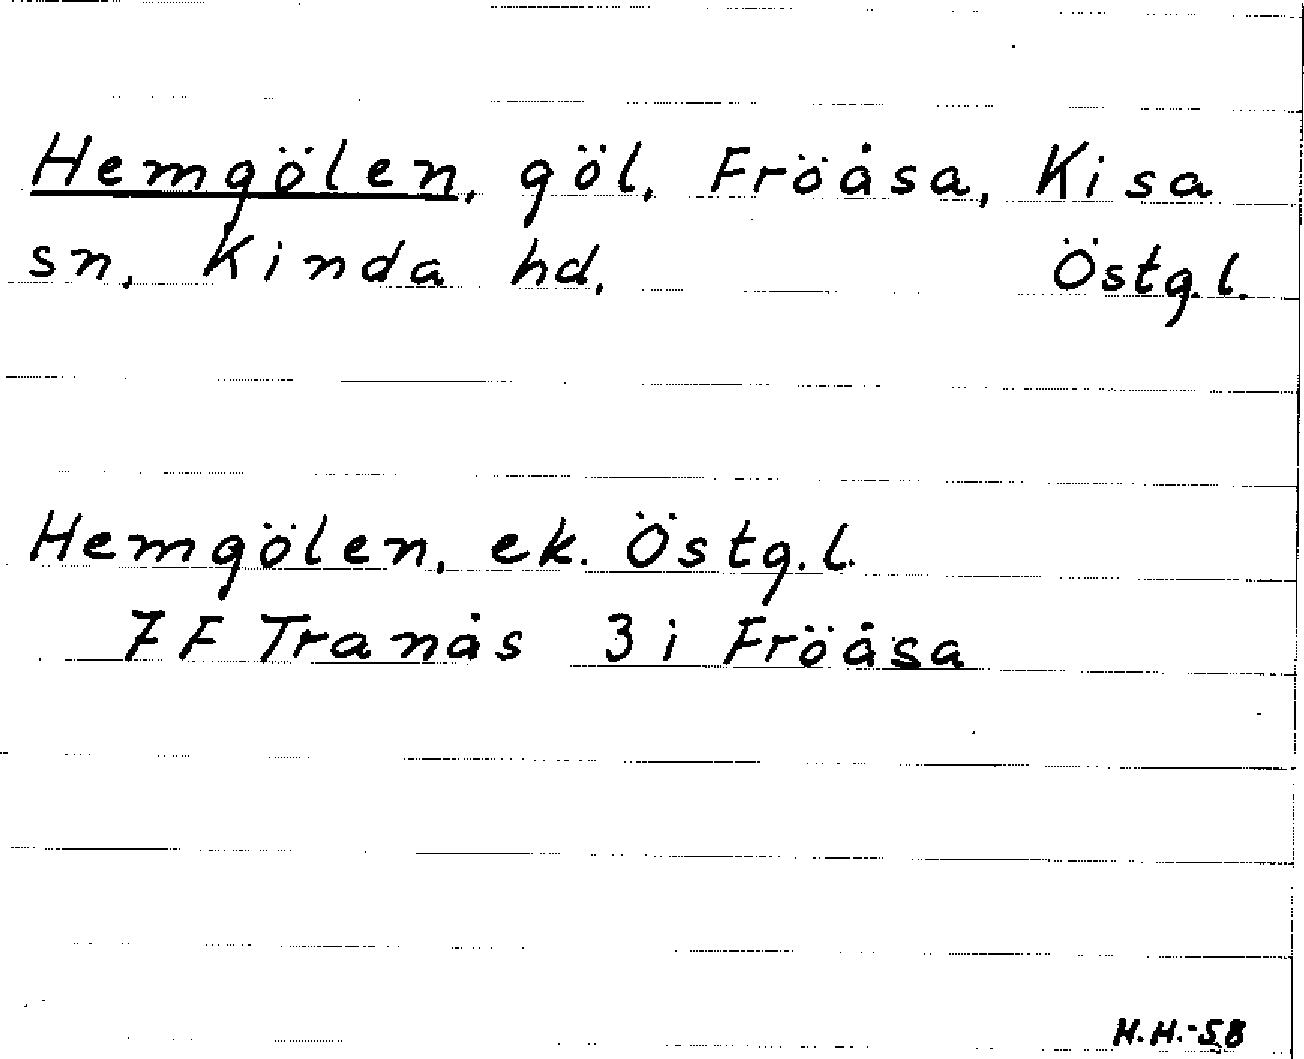 Hemgölen, göl, Fröåsa, Kisa
sn, Kinda hd, Östg.l.
Hemgölen, ek. Östg.l.
7 F Tranås 3 i Fröåsa
H.H.-58